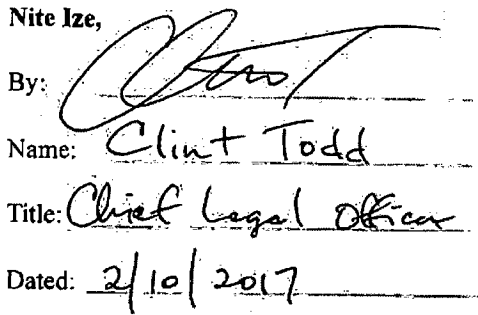 Nite Ize,
By:
Name: Clint Todd
Title: Chief Legal Officer
Dated: 2/10/2017